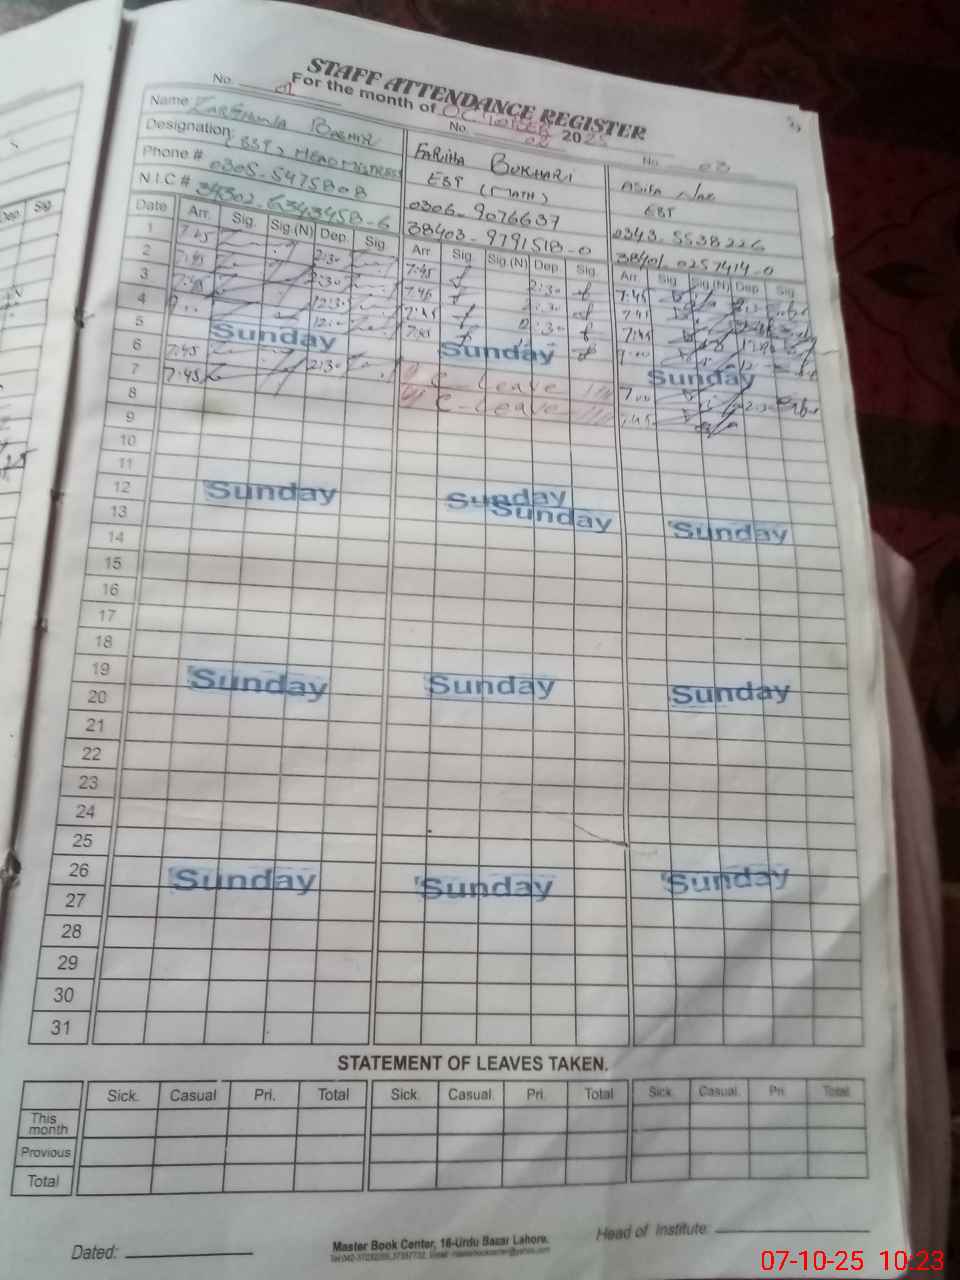 STAFF ATTENDANCE REGISTER
For the month of OCTOBER 2025
No. 01 No. 02 No. 03
Name Bashir FARIHA BUKHARI ASIFA Naz
Designation: (EST) HEADMISTRESS EST (MATH) EST
Phone # 0305-5475808 0306-9076637 0343-5538226
N.I.C # 34302-6343458-6 38403-9791518-0 38401-0257414-0
Date Arr. Sig. Sig.(N) Dep. Sig. Arr Sig. Sig.(N) Dep. Sig. Arr. Sig. Sig.(N) Dep. Sig.
1 7:45 2:30 7:45 2:30 7:45
2 7:45 2:30 7:45 2:30 7:45
3 7:45 12:30 7:45 12:30 7:45
4 12:00 7:45 7:00
5 Sunday Sunday Sunday
6 7:45 2:30 C-Leave 7:00 2:30
7 7:45 C-Leave 7:45
8
9
10
11
12 Sunday Sunday Sunday
13 Sunday
14
15
16
17
18
19 Sunday Sunday Sunday
20
21
22
23
24
25
26 Sunday Sunday Sunday
27
28
29
30
31
STATEMENT OF LEAVES TAKEN.
Sick. Casual Pri. Total Sick. Casual. Pri. Total Sick. Casual. Pri. Total
This month
Provious
Total
Dated: Head of Institute:
Master Book Center, 16-Urdu Bazar Lahore.
07-10-25 10:23